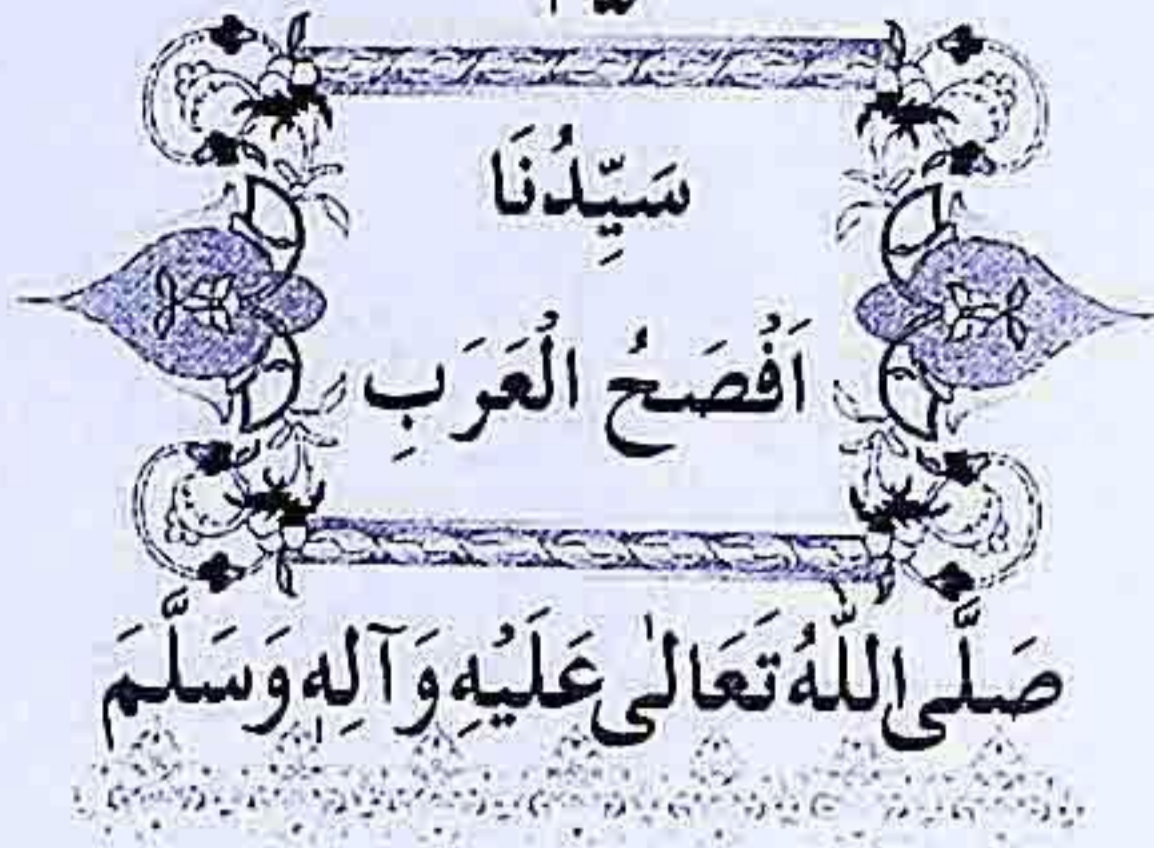 سَيِّدُنَا
اَفْصَحُ الْعَرَبِ
صَلَّى اللّٰهُ تَعَالٰى عَلَيْهِ وَآلِهٖ وَسَلَّمَ